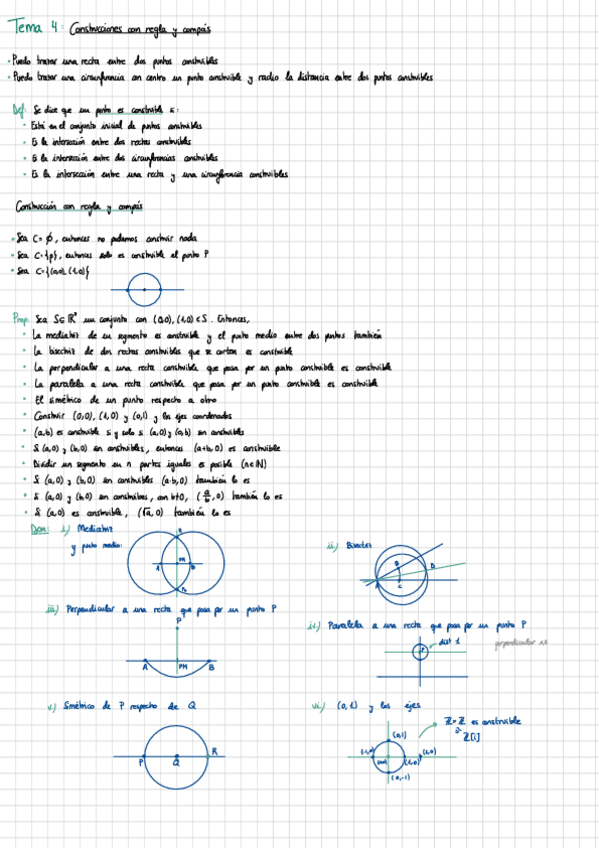 Tema 4: Construcciones con regla y compás
· Puedo trazar una recta entre dos puntos construibles
· Puedo trazar una circunferencia con centro un punto construible y radio la distancia entre dos puntos construibles
Def: Se dice que un punto es construible si:
· Está en el conjunto inicial de puntos construibles
· Es la intersección entre dos rectas construibles
· Es la intersección entre dos circunferencias construibles
· Es la intersección entre una recta y una circunferencia construibles
Construcción con regla y compás
· Sea C = ∅, entonces no podemos construir nada
· Sea C = {p}, entonces solo es construible el punto P
· Sea C = {(0,0), (1,0)}
Prop: Sea S ⊆ ℝ² un conjunto con (0,0), (1,0) ∈ S. Entonces,
· La mediatriz de un segmento es construible y el punto medio entre dos puntos también
· La bisectriz de dos rectas construibles que se cortan es construible
· La perpendicular a una recta construible que pasa por un punto construible es construible
· La paralela a una recta construible que pasa por un punto construible es construible
· El simétrico de un punto respecto a otro
· Construir (0,0), (1,0) y (0,1) y los ejes coordenados
· (a,b) es construible si y solo si (a,0) y (0,b) son construibles
· Si (a,0) y (b,0) son construibles, entonces (a+b,0) es construible
· Dividir un segmento en n partes iguales es posible (n∈ℕ)
· Si (a,0) y (b,0) son construibles (a·b,0) también lo es
· Si (a,0) y (b,0) son construibles, con b≠0, (a/b,0) también lo es
· Si (a,0) es construible, (√a,0) también lo es
Dem: i) Mediatriz
y punto medio:
A PM B
ii) Bisectriz
A B C D
iii) Perpendicular a una recta que pasa por un punto P
P
A PM B
iv) Paralela a una recta que pasa por un punto P
P dist 1
perpendicular
v) Simétrico de P respecto de Q
P Q R
vi) (0,1) y los ejes
(0,1)
(-1,0) (0,0) (1,0) (2,0)
(0,-1)
ℤ×ℤ es construible
ℤ[i]